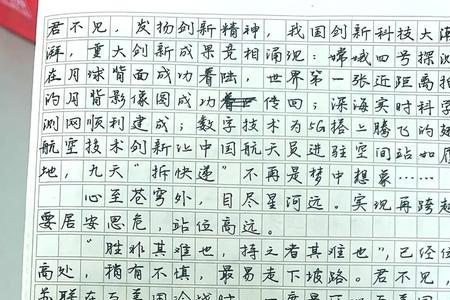 君不见，发扬创新精神，我国创新科技大潮澎
湃，重大创新成果竞相涌现：嫦娥四号探测
在月球背面成功着陆，世界第一张近距离拍
的月背影像图成功传回；深海实时科学
测网顺利建成；数字技术为5G搭上腾飞的翅
航空技术创新让中国航天员进驻空间站如履
地，九天“拆快递”不再是梦中想象……
心至苍穹外，目尽星河远。实现再跨越
要居安思危，站位高远。
“胜非其难也，持之者其难也”，已经位
高处，稍有不慎，最易走下坡路。君不见，
苏联在与美国冷战时，一度